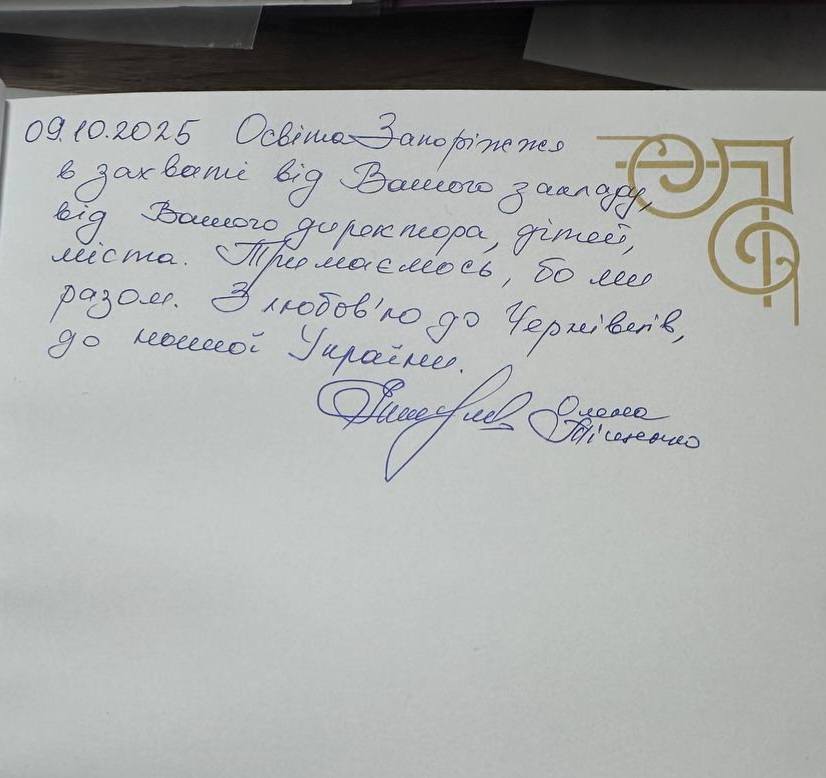 09.10.2025 Освіта Запоріжжя
в захваті від Вашого закладу,
від Вашого директора, дітей,
міста. Тримаємось, бо ми
разом. З любов'ю до Чернівців,
до нашої України.
Олена